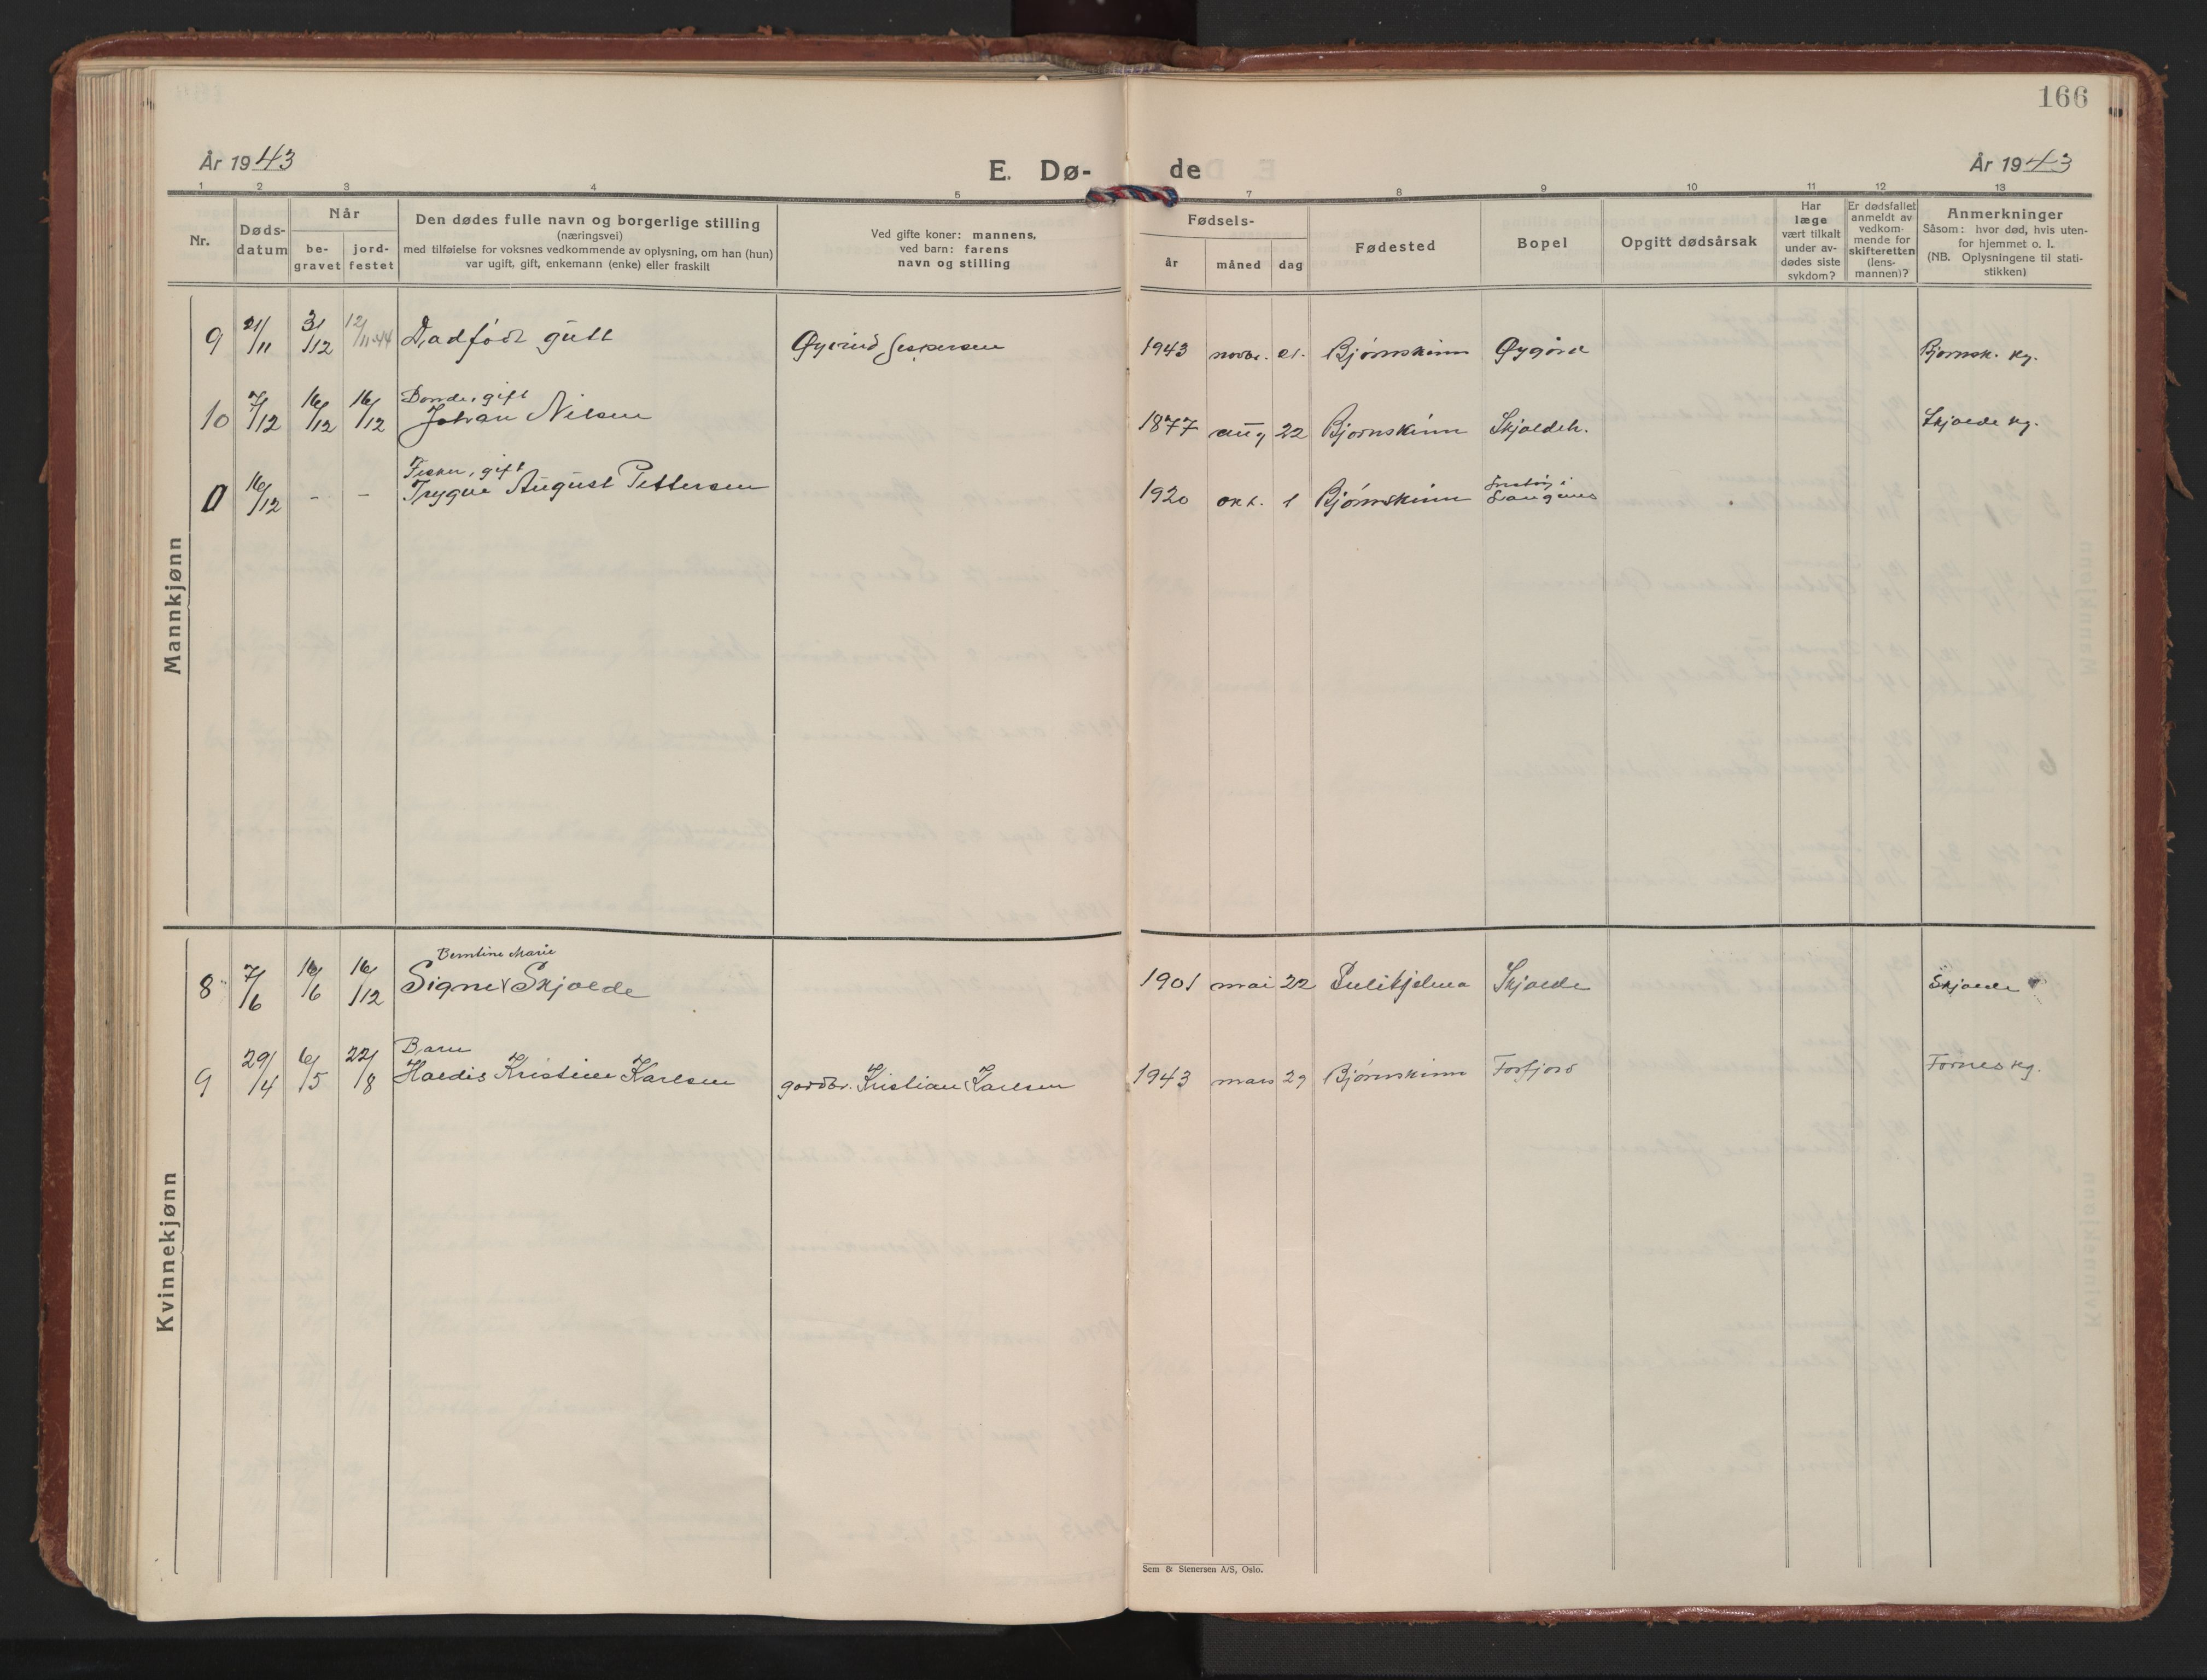 166
År 1943
E. Dø-de
År 1943
1 2 3 4 5 7 8 9 10 11 12 13
Nr.
Døds-
datum
Når
be-
gravet
jord-
festet
Den dødes fulle navn og borgerlige stilling
(næringsvei)
med tilføielse for voksnes vedkommende av oplysning, om han (hun)
var ugift, gift, enkemann (enke) eller fraskilt
Ved gifte koner: mannens,
ved barn: farens
navn og stilling
Fødsels-
år måned dag
Fødested
Bopel
Opgitt dødsårsak
Har
læge
vært tilkalt
under av-
dødes siste
sykdom?
Er dødsfallet
anmeldt av
vedkom-
mende for
skifteretten
(lens-
mannen)?
Anmerkninger
Såsom: hvor død, hvis uten-
for hjemmet o. l.
(NB. Oplysningene til stati-
stikken)
Mannkjønn
9 21/11 31/12 12/11-44 Dødfødt gutt Øyvind Jespersen 1943 novbr. 21. Bjørnskinn Øygård Bjornsk. kg.
Bonde, gift
10 7/12 16/12 16/12 Johan Nilsen 1877 aug 22 Bjornskinn Skjoldeh. Skjolde kg.
Fisker, gift
0 16/12 - - Trygve August Pettersen 1920 okt. 1 Bjørnskinn Langenes
Kvinnekjønn
Berntine Marie
8 7/6 16/6 16/12 Signe Skjolde 1901 mai 22 Sulitjelma Skjolde Skjolde
Barn
9 29/4 6/5 22/8 Haldis Kristine Karlsen gardbr. Kristian Karlsen 1943 mars 29 Bjørnskinn Forfjord Fornes kg.
Sem & Stenersen A/S, Oslo.